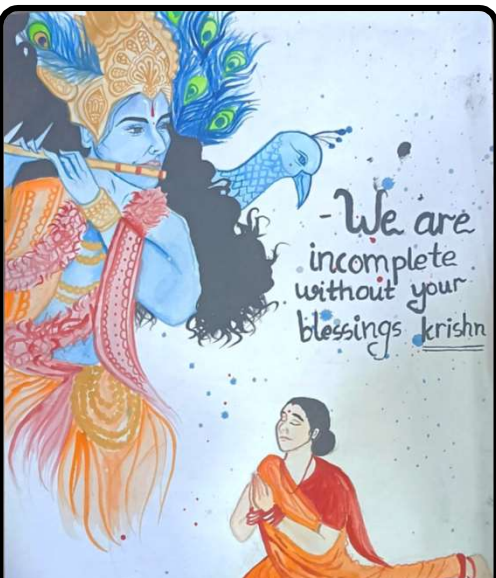 - We are
incomplete
without your
blessings krishn